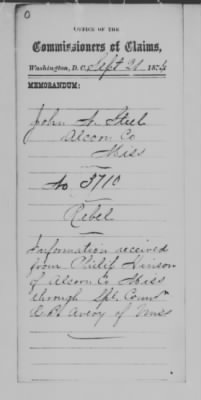 0
OFFICE OF THE
Commissioners of Claims,
Washington, D.C. Sept 21 187
MEMORANDUM:
John N. Steel
Alcorn Co
Miss
No 3710
Rebel
Information received
from Philip Hinson
of Alcorn Co Miss
through Spl. Comr
Avery of Miss